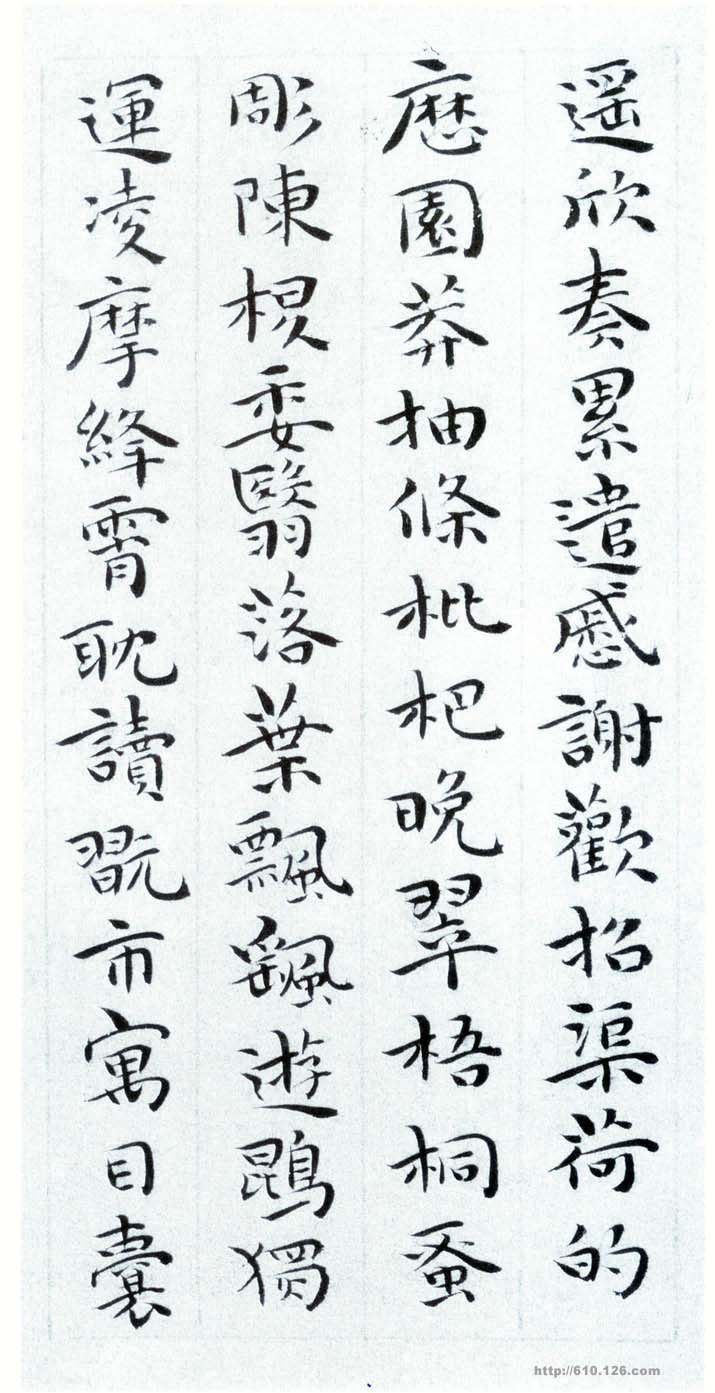 遥欣奏累遣慼謝歡招渠荷的
歷園莽抽條枇杷晚翠梧桐蚤
彫陳根委翳落葉飄颻遊鵾獨
運凌摩絳霄耽讀翫市寓目囊
http://610.126.com